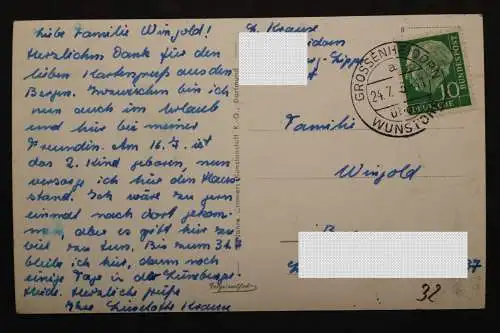 Liebe Familie Wingold!
Herzlichen Dank für den
lieben Kartengruß aus den
Bergen. Inzwischen bin ich
nun auch im Urlaub
und hier bei meiner
Freundin. Am 16.7. ist
das 2. Kind geboren, nun
versorge ich hier den Haus-
stand. Ich wäre zu gern
einmal nach dort gekom-
men, aber es gibt hier zu
viel zu tun. Bis zum 31.7.
bleibe ich hier, dann noch
einige Tage in der Lüneburger
Heide. Herzliche Grüße
Ihre Liselotte Krause
L. Krause
GROSSENHEIDORN
24.7.
WUNSTORF
DEUTSCHE
BUNDESPOST
10
Familie
Wingold
32